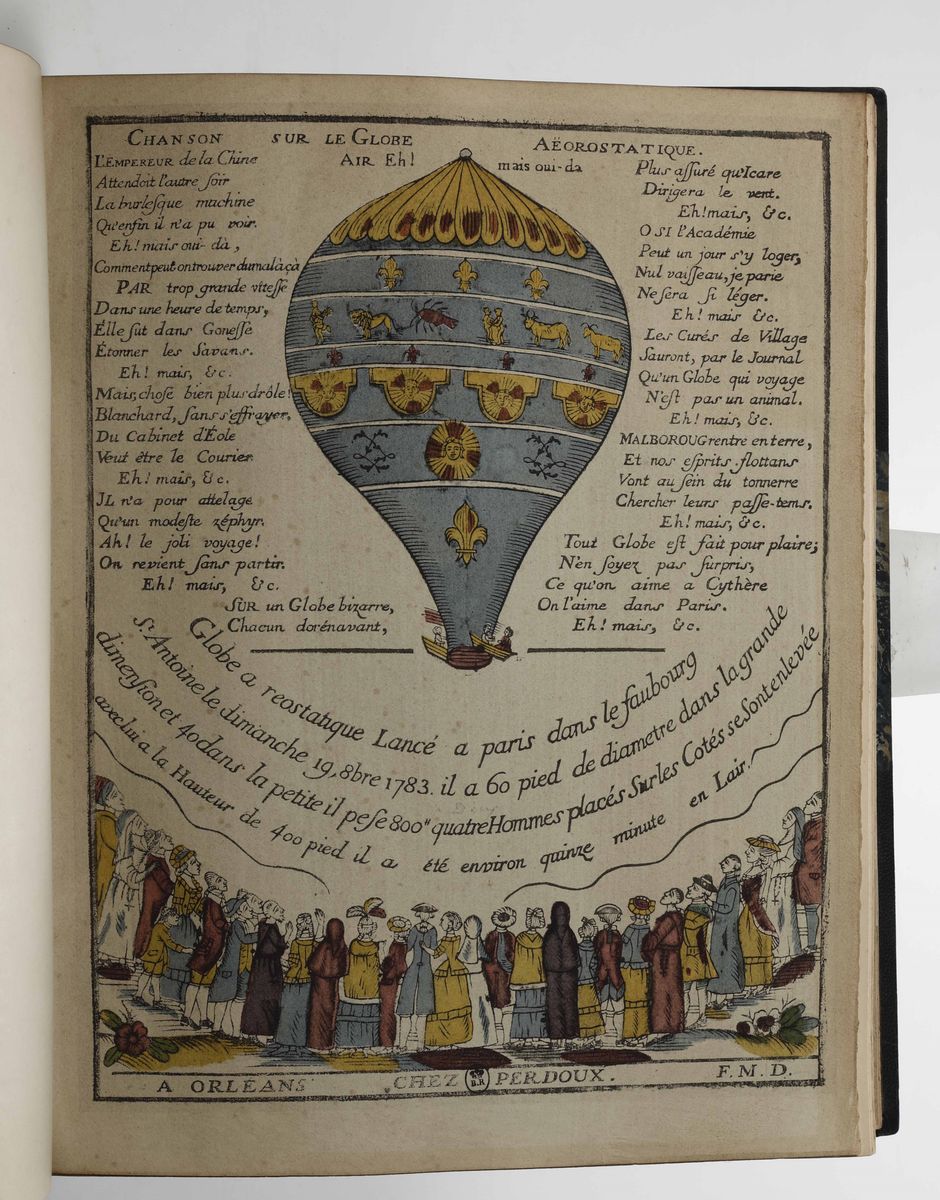 CHANSON SUR LE GLOBE AËOROSTATIQUE.
AIR Eh! mais oui-da
L'EMPEREUR de la Chine
Attendoit l'autre ſoir
La burleſque machine
Qu'enfin il n'a pu voir.
Eh! mais oui-dà,
Comment peut on trouver du mal à çà
PAR trop grande viteſſe
Dans une heure de temps,
Élle fut dans Goneſſe
Étonner les Savans.
Eh! mais, &c.
Mais, choſe bien plus drôle!
Blanchard, ſans s'effrayer,
Du Cabinet d'Éole
Veut être le Courier.
Eh! mais, &c.
JL n'a pour attelage
Qu'un modeſte zéphyr.
Ah! le joli voyage!
On revient ſans partir.
Eh! mais, &c.
SUR un Globe bizarre,
Chacun dorénavant,
Plus aſſuré qu'Icare
Dirigera le vent.
Eh! mais, &c.
O SI l'Académie
Peut un jour s'y loger,
Nul vaiſſeau, je parie
Ne ſera ſi léger.
Eh! mais &c.
Les Curés de Village
Sauront, par le Journal
Qu'un Globe qui voyage
N'eſt pas un animal.
Eh! mais, &c.
MALBOROUG rentre en terre,
Et nos eſprits flottans
Vont au ſein du tonnerre
Chercher leurs paſſe-tems.
Eh! mais, &c.
Tout Globe eſt fait pour plaire;
N'en ſoyez pas ſurpris,
Ce qu'on aime a Cythère
On l'aime dans Paris.
Eh! mais, &c.
Globe a reostatique Lancé a paris dans le faubourg
St. Antoine le dimanche 19, 8bre 1783. il a 60 pied de diametre dans la grande
dimenſion et 40 dans la petite il peſe 800" quatre Hommes placés Sur les Cotés se Sont enlevée
avec lui a la Hauteur de 400 pied il a été environ quinze minute en Lair.
A ORLÉANS CHEZ PERDOUX. F. M. D.
B.R